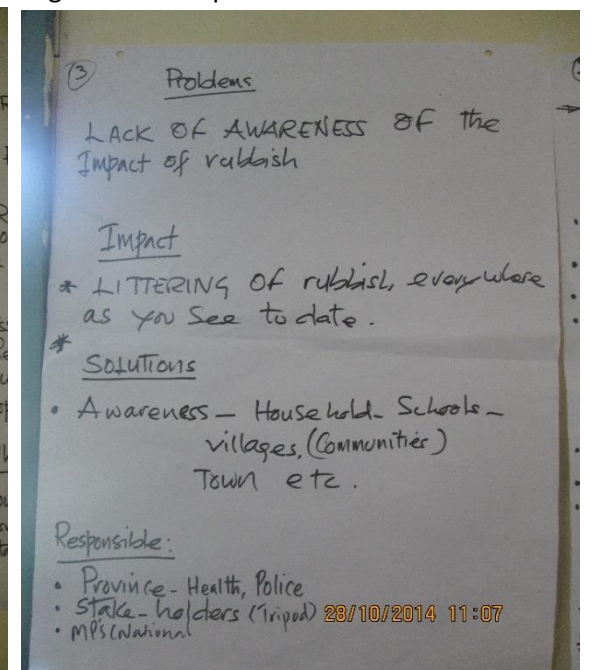 3
Problems
LACK OF AWARENESS OF the
Impact of rubbish
Impact
* LITTERING OF rubbish, everywhere
as you See to date.
*
SOLUTIONS
• Awareness – Household – Schools –
villages, (Communities)
Town etc.
Responsible:
• Province - Health, Police
• Stake-holders (Tripod) 28/10/2014 11:07
• MP's (National